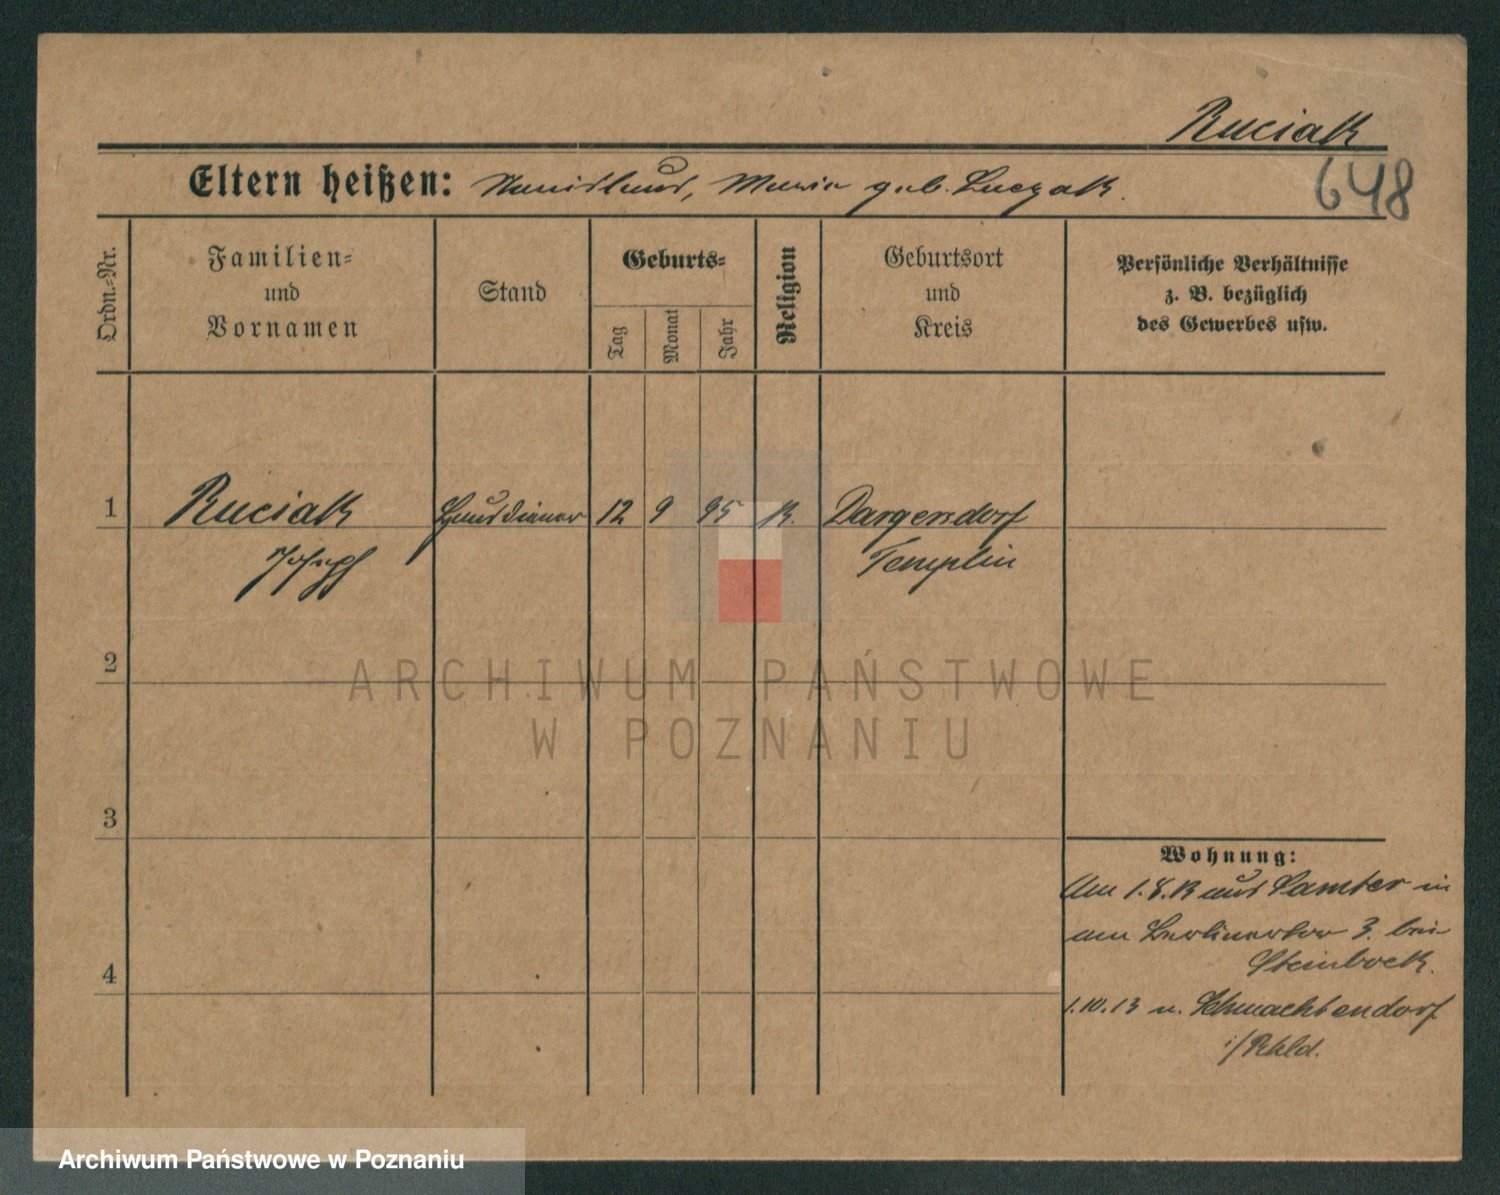 Ruciak
648
Eltern heißen: Stanislaus, Maria geb. Luczak.
Ordn.-Nr.
Familien-
und
Vornamen
Stand
Geburts-
Tag
Monat
Jahr
Religion
Geburtsort
und
Kreis
Persönliche Verhältnisse
z. B. bezüglich
des Gewerbes usw.
1 Ruciak Hausdiener 12 9 95 K. Dargersdorf
Joseph Templin
2
3
4
Wohnung:
Am 1.8.13 aus Samter in
am Berlinertor 3. bei
Steinbock.
1.10.13 n. Schmachtendorf
i/Rhld.
ARCHIWUM PAŃSTWOWE
W POZNANIU
Archiwum Państwowe w Poznaniu